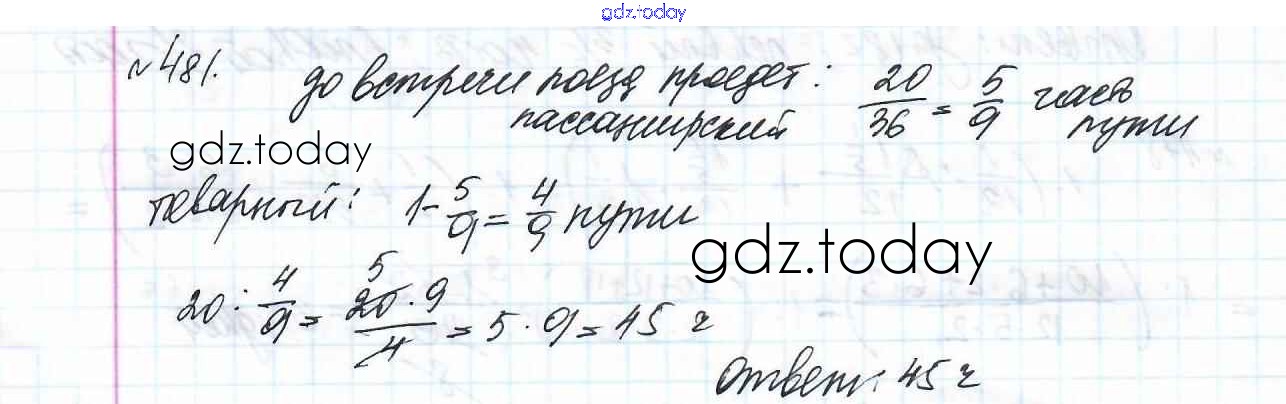 gdz.today
№481.
до встречи поезд проедет:
пассажирский 20/36 = 5/9 часть пути
gdz.today
товарный: 1 - 5/9 = 4/9 пути
gdz.today
20 : 4/9 = 20·9/4 = 5·9 = 45 ч
5
Ответ: 45 ч